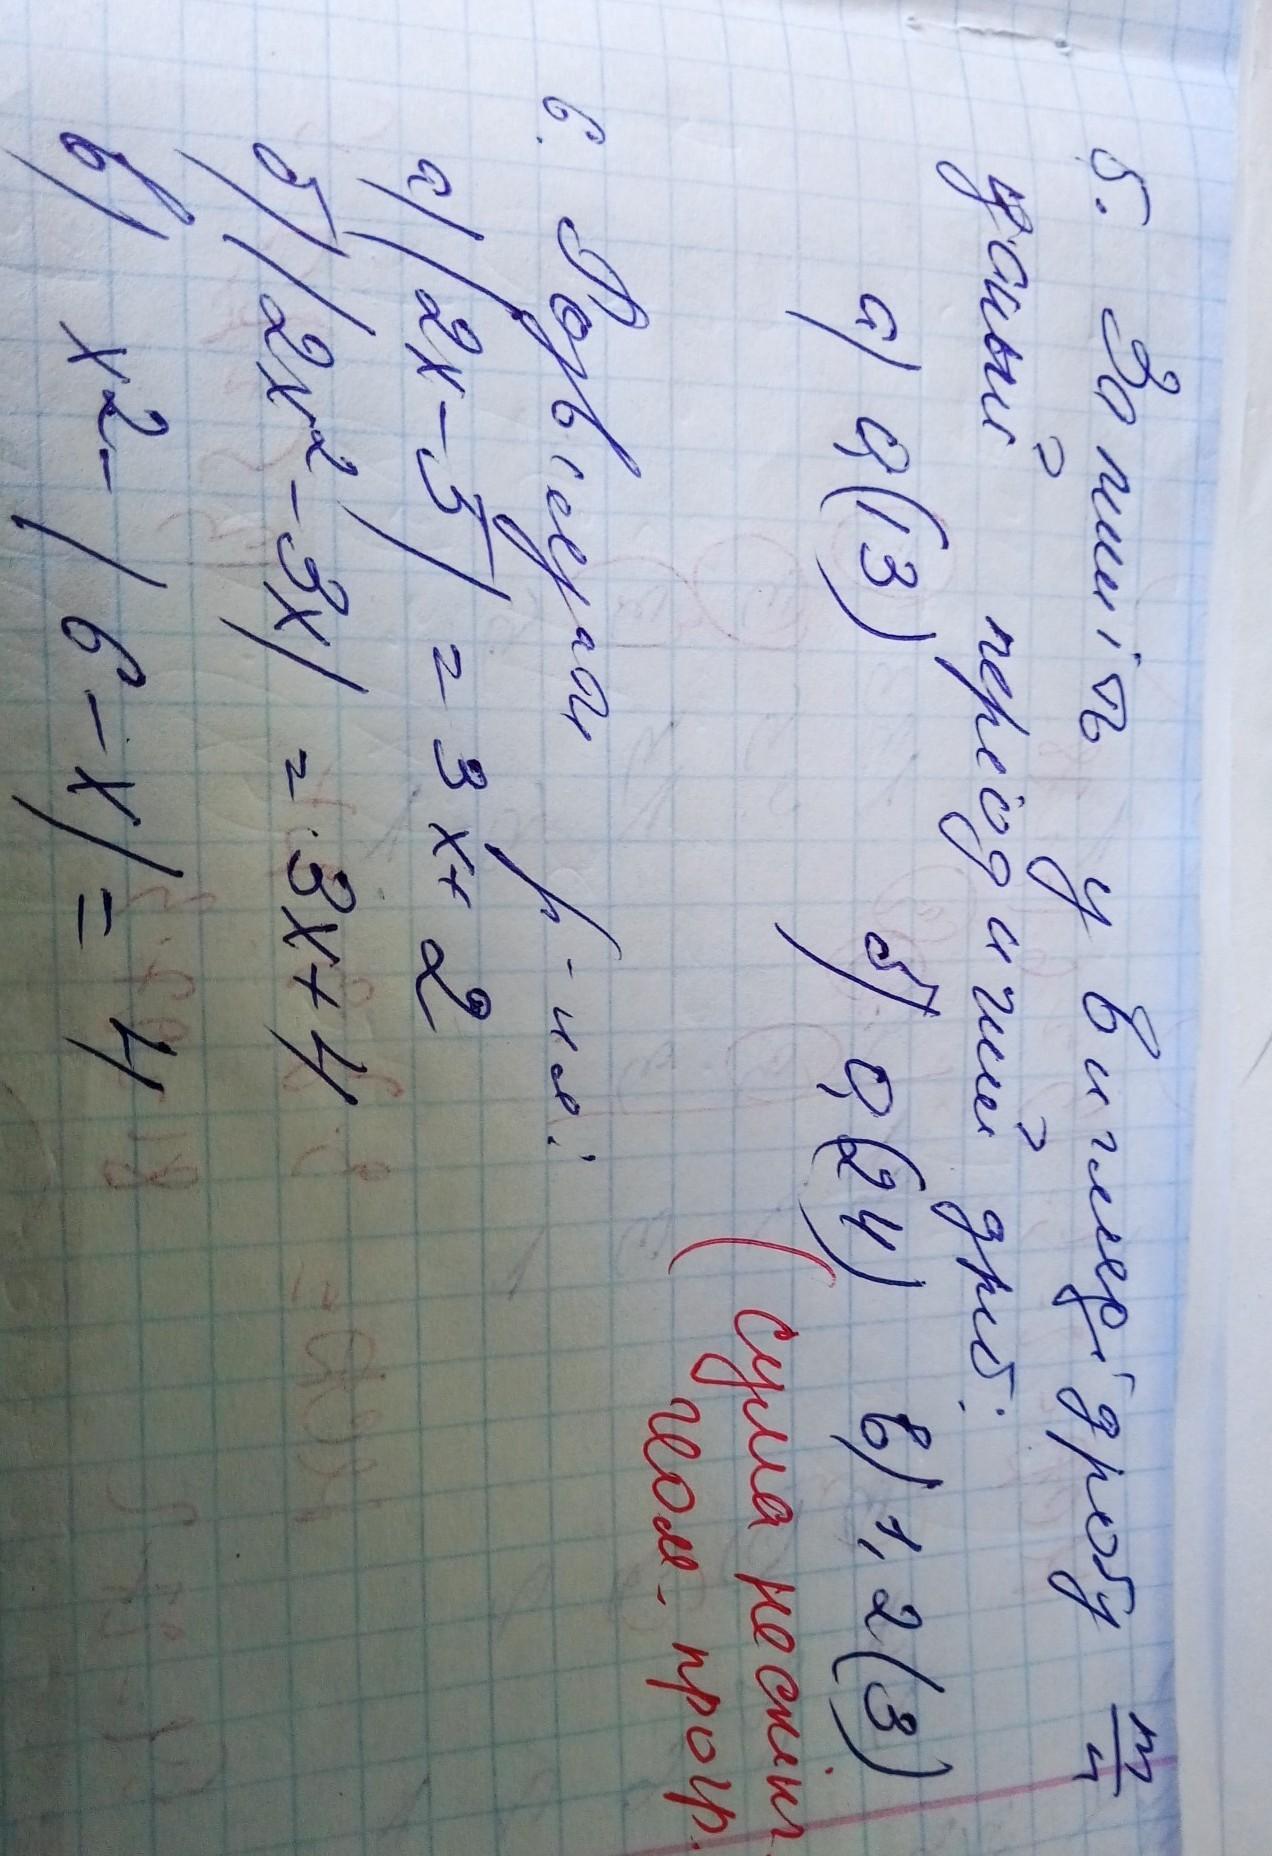 5. Запишіть у вигляді дробу m/n
даний періодичний дріб:
а) 0,(13) б) 0,(24) в) 1,2(3)
(сума нескін.
геом. прогр.
6. Розв'яжи р-ня:
а) |2x-5| = 3x+2
б) |2x²-3x| = 3x+4
в) x²-|6-x| = 4